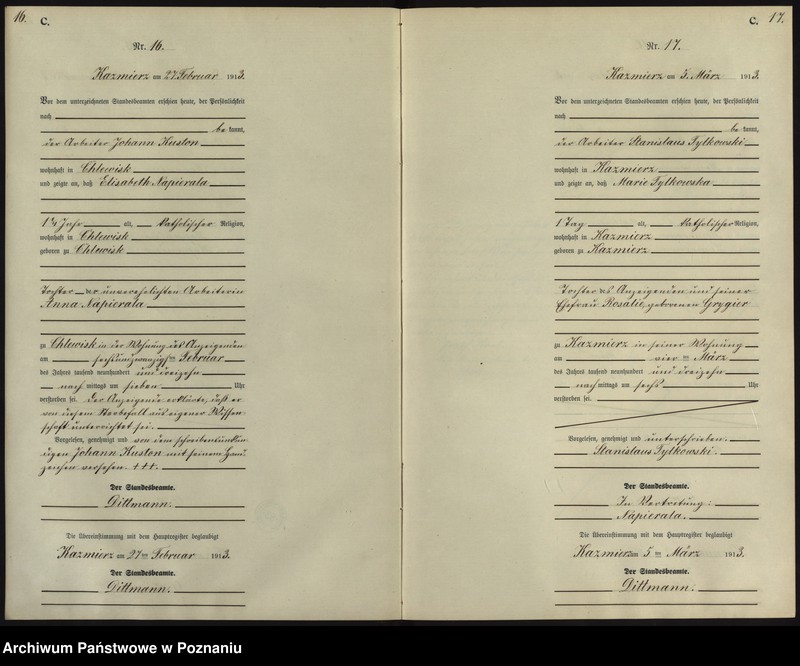 16.
C.
Nr. 16.
Kazmierz am 27. Februar 1913.
Vor dem unterzeichneten Standesbeamten erschien heute, der Persönlichkeit
nach
be kannt,
der Arbeiter Johann Kuston
wohnhaft in Chlewisk
und zeigte an, daß Elisabeth Napierala
1¼ Jahr alt, katholischer Religion,
wohnhaft in Chlewisk
geboren zu Chlewisk
Tochter der unverehelichten Arbeiterin
Anna Napierala
zu Chlewisk in der Wohnung des Anzeigenden
am sechsundzwanzigsten Februar
des Jahres tausend neunhundert und dreizehn
nach mittags um sieben Uhr
verstorben sei. Der Anzeigende erklärte, daß er
von diesem Sterbefall aus eigener Wissen-
schaft unterrichtet sei.
Vorgelesen, genehmigt und von dem schreibunkun-
digen Johann Kuston mit seinem Hand-
zeichen versehen. +++.
Der Standesbeamte.
Dittmann.
Die Übereinstimmung mit dem Hauptregister beglaubigt
Kazmierz am 27ten Februar 1913.
Der Standesbeamte.
Dittmann.
C.
17.
Nr. 17.
Kazmierz am 5. März 1913.
Vor dem unterzeichneten Standesbeamten erschien heute, der Persönlichkeit
nach
be kannt,
der Arbeiter Stanislaus Tylkowski
wohnhaft in Kazmierz
und zeigte an, daß Marie Tylkowska
1 Tag alt, katholischer Religion,
wohnhaft in Kazmierz
geboren zu Kazmierz
Tochter des Anzeigenden und seiner
Ehefrau Rosalie, geborenen Grygier
zu Kazmierz in seiner Wohnung
am vier ten März
des Jahres tausend neunhundert und dreizehn
nach mittags um sechs Uhr
verstorben sei.
Vorgelesen, genehmigt und unterschrieben.
Stanislaus Tylkowski.
Der Standesbeamte.
In Vertretung:
Napierala.
Die Übereinstimmung mit dem Hauptregister beglaubigt
Kazmierz am 5ten März 1913.
Der Standesbeamte.
Dittmann.
Archiwum Państwowe w Poznaniu